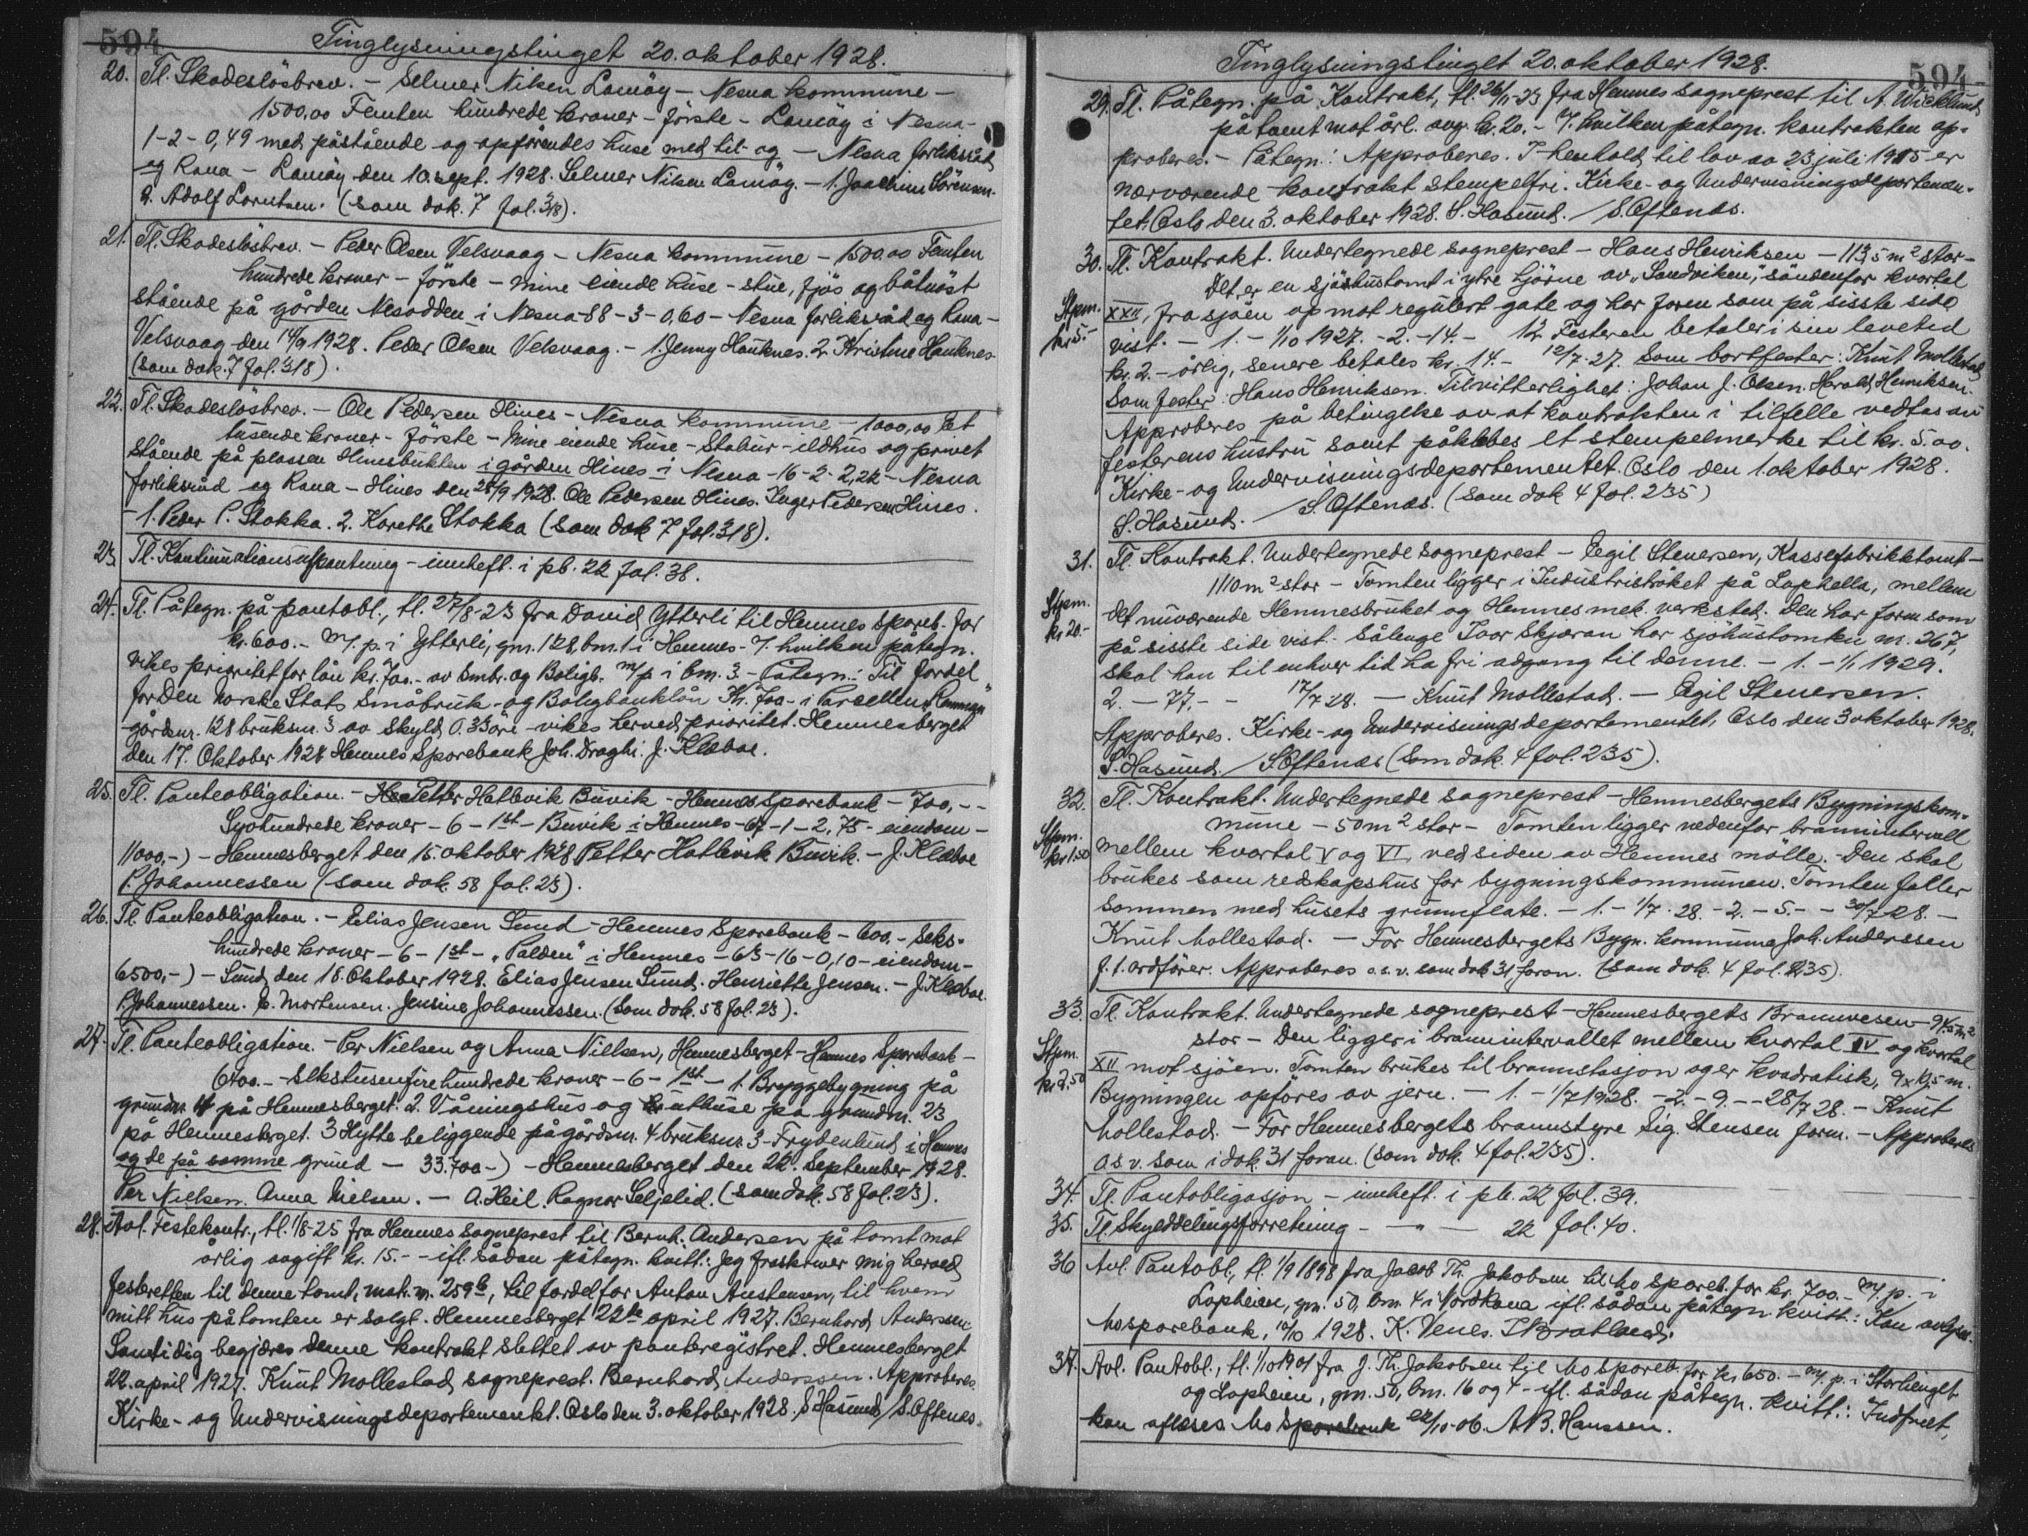 594
Tinglysningstinget 20. oktober 1928.
20. Tl. Skadeslösbrev. – Selmer Nilsen Lamöy – Nesna kommune –
1500,00 Femten hundrede kroner – förste – Lamöy i Nesna –
1–2–0,49 med påstående og opförendes huse med til og – Nesna forliksråd
og Rana – Lamöy den 10. sept. 1928. Selmer Nilsen Lamöy. – 1. Joachim Sörensen.
2. Adolf Lorntsen. (som dok. 7 fol. 318).
21. Tl. Skadeslösbrev. – Peder Olsen Velsvaag – Nesna kommune – 1500,00 Femten
hundrede kroner – förste – mine eiende huse – stue, fjös og båtnöst
stående på gården Nesodden i Nesna – 88–3–0,60 – Nesna forliksråd og Rana –
Velsvaag den 14/9 1928. Peder Olsen Velsvaag. – 1. Jenny Hauknes. 2. Kristine Hauknes
(som dok. 7 fol. 318).
22. Tl. Skadeslösbrev. – Ole Pedersen Hines – Nesna kommune – 1000,00 Et
tusende kroner – förste – Mine eiende huse – Stabur – ildhus og privet
stående på plassen Hinesbukten i gården Hines i Nesna – 16–2–2,22 – Nesna
forliksråd og Rana – Hines den 25/9 1928. Ole Pedersen Hines. Inger Pedersen Hines.
– 1. Peder P. Stokka. 2. Karethe Stokka (som dok 7 fol. 318).
23. Tl. Kontinuationsutpantning – innheft. i pb. 22 fol. 38.
24. Tl. Påtegn. på pantobl., tl. 27/8–23 fra David Ytterli til Hemnes spareb. for
kr. 600.– m/ p. i Ytterli, gnr. 128, bnr. 1 i Hemnes – i/ hvilken påtegn.
vikes prioritet for lån kr. 700.– av Smbr. og Boligb. m/p i bnr. 3. – Påtegn.: Til fordel
for Den norske Stats Småbruk– og Boligbanklån Kr. 700– i Parsellen
gårdsnr. 128 bruksnr. 3 av skyld 0.33 öre – vikes herved prioritet. Hemnesberget
den 17. Oktober 1928 Hemnes Sparebank Joh. Dragh. J. Klæboe.
25. Tl. Panteobligation. – Petter Hatlevik Buvik – Hemnes Sparebank – 700,– –
Syvhundrede kroner – 6 – 1st – Buvik i Hemnes – 67–1–2,75 – eiendom –
11000,–) – Hemnesberget den 15. oktober 1928 Petter Hatlevik Buvik. – J. Klæboe
P. Johannessen (som dok. 58 fol. 23).
26. Tl. Panteobligation. – Elias Jensen Sund – Hemnes Sparebank – 600.– Seks-
hundrede kroner – 6 – 1st – „Palden" i Hemnes – 63–16–0,10 – eiendom –
6500,–) – Sund den 18. Oktober 1928. Elias Jensen Sund. Henriette Jensen. – J. Klæboe
P. Johannessen. E. Mortensen. Jensine Johannessen. (Som dok. 58 fol. 23).
27. Tl. Panteobligation. – Per Nielsen og Anna Nielsen, Hemnesberget – Hemnes Sparebank –
6400.– sekstusenfirehundrede kroner – 6 – 1st – 1. Bryggebygning på
grundnr. 4 på Hemnesberget. 2. Våningshus og uthuse på grundnr. 23
på Hemnesberget. 3 Hytte beliggende på gårdsnr. 4 bruksnr. 3 – Frydenlund i Hemnes
og de på samme grund – 33.700–) – Hemnesberget den 22. September 1928.
Per Nielsen. Anna Nielsen. – A. Heil. Ragnar Seljelid. (som dok. 58 fol. 23).
28. Avl. Festekontr., tl. 1/8–25 fra Hemnes sogneprest til Bernh. Andersen på tomt mot
årlig avgift kr. 15.– – ifl. sådan påtegn. kvitt.: Jeg fraskriver mig herved
festeretten til denne tomt, matr. nr. 259b, til fordel for Anton Austensen, til hvem
mitt hus på tomten er solgt. Hemnesberget 22de april 1927. Bernhard Anderssen.
Samtidig begjæres denne kontrakt slettet av panteregistret. Hemnesberget
22. april 1927. Knut Mollestad, sogneprest. Bernhard Anderssen. Approberes
Kirke– og Undervisningsdepartementet. Oslo den 3. oktober 1928. S. Hasund / S. Oftenæs.
594
Tinglysningstinget 20. oktober 1928.
29. Tl. Påtegn. på Kontrakt, tl. 26/11–23 fra Hemnes sogneprest til A. Wicklund
på tomt mot årl. avg. kr. 20.– i/ hvilken påtegn. kontrakten ap-
proberes. – Påtegn: Approberes. I henhold til lov av 23 juli 1915 er
nærværende kontrakt stempelfri. Kirke– og Undervisningsdepartemen-
tet. Oslo den 3. oktober 1928. S. Hasund. / S. Oftenæs.
30. Tl. Kontrakt. Undertegnede sogneprest – Hans Henriksen – 113,5 m² stor –
Det er en sjöhustomt i ytre hjörne av „Sandviken", sönnenfor kvartal
Stpm.
kr 5.–
XXII, fra sjöen op mot regulert gate og har form som på sisste side
vist. – 1. – 1/10 1927. – 2. – 14. – 1/2. Festeren betaler i sin levetid
kr. 2.– årlig, senere betales kr. 14.– 12/7. 27. Som bortfester: Knut Mollestad
Som fester: Hans Henriksen. Tilvitterlighet: Johan J. Olsen. Harald Henriksen.
Approberes på betingelse av at kontrakten i tilfelle vedtas av
festerens hustru samt påklebes et stempelmerke til kr. 5.00.
Kirke– og Undervisningsdepartementet. Oslo den 1. oktober 1928.
S. Hasund. / S. Oftenæs. (som dok 4 fol. 235)
31. Tl. Kontrakt. Undertegnede sogneprest – Egil Stenersen, Kassefabrikktomt –
1110 m² stor – Tomten ligger i Industriströket på Laphella, mellem
Stpm.
kr 20.–
det nuværende Hemnesbruket og Hemnes mek. verksted. Den har form som
på sisste side vist. Sålenge Ivar Skjæran har sjöhustomten nr. 267,
skal han til enhver tid ha fri adgang til denne. – 1. – 1/1 1929.
2. – 77. – – 17/7–28. – Knut Mollestad. – Egil Stenersen.
Approberes. Kirke– og Undervisningsdepartementet, Oslo den 3 oktober 1928.
S. Hasund. / S. Oftenæs (Som dok. 4 fol. 235).
32. Tl. Kontrakt. Undertegnede sogneprest – Hemnesbergets Bygningskom-
mune – 50 m² stor – Tomten ligger nedenfor brannintervall
Stpm.
kr 1.50
mellem kvartal V og VI, ved siden av Hemnes mölle. – Den skal
brukes som redskapshus for bygningskommunen. Tomten faller
sammen med husets grunnflate. – 1. – 1/7. 28. – 2. – 5. – – 30/7 28. –
Knut Mollestad. – For Hemnesbergets Bygn. kommune Joh. Anderssen
f. t. ordförer. Approberes o. s. v. som dok 31 foran. (som dok. 4 fol. 235).
33. Tl. Kontrakt. Undertegnede sogneprest – Hemnesbergets Brannvesen – 94,5 m²
stor – Den ligger i brannintervallet mellem kvartal IV og kvartal
Stpm.
kr 2,50
XII mot sjöen. Tomten brukes til brannstasjon og er kvadratisk, 9 x 10,5 m.
Bygningen opföres av jern. – 1. – 1/7 1928. – 2. – 9. – – 28/7 28. – Knut
Mollestad. – For Hemnesbergets brannstyre Sig. Stensen form. – Approberes
o.s.v. som i dok. 31 foran. (som dok. 4 fol. 235).
34. Tl. Pantobligasjon – innheft. i pb. 22 fol. 39.
35. Tl. Skylddelingsforretning – — „ — 22 fol. 40.
36 Avl. Pantobl., tl. 1/9 1898 fra Jacob Th. Jakobsen til Mo spareb. for kr. 700.– m/ p. i
Lapheien, gnr. 50, bnr. 4 i Nordrana ifl. sådan påtegn. kvitt.: Kan avlyses.
Mo sparebank, 10 1928. K. Venes.
37. Avl. Pantobl., tl. 1/10 1901 fra J. Th. Jakobsen til Mo spareb. for kr 650.– m/ p. i Storhenget
og Lapheien, gnr. 50, bnr. 16 og 4 – ifl. sådan påtegn. kvitt.: Indfriet,
kan aflæses Mo Sparebank 22/10–06. A. B. Hanssen.